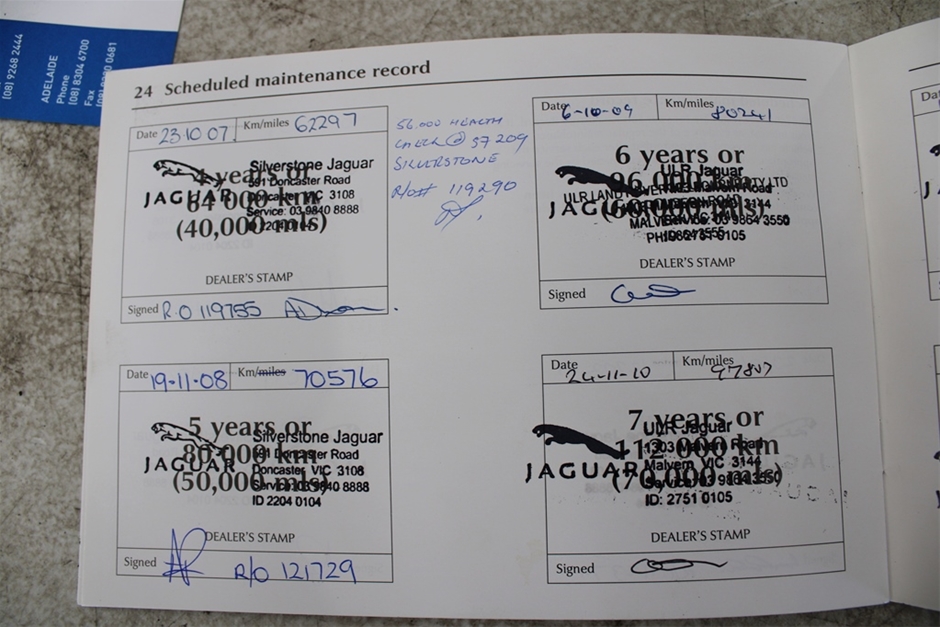 [08] 9268 2444
ADELAIDE
Phone
[08] 8304 6700
Fax
0681
24 Scheduled maintenance record
Date 23·10·07 Km/miles 62297
4 years or
64 000 km
(40,000 mls)
JAGUAR
Silverstone Jaguar
591 Doncaster Road
Doncaster VIC 3108
Service: 03 9840 8888
ID 2204 0104
DEALER'S STAMP
Signed R.O 119755
56.000 HEALTH
CHECK @ 57209
SILVERSTONE
R/O# 119290
Date 6-10-09 Km/miles 80241
6 years or
96 000 km
JAGUAR
ULR Jaguar
MALVERN
03 9864 3550
DEALER'S STAMP
Signed
Date 19-11-08 Km/miles 70576
5 years or
80 000 km
(50,000 mls)
JAGUAR
Silverstone Jaguar
591 Doncaster Road
Doncaster VIC 3108
Service: 03 9840 8888
ID 2204 0104
DEALER'S STAMP
Signed R/O 121729
Date 24-11-10 Km/miles 97807
7 years or
112 000 km
(70,000 mls)
JAGUAR
ULR Jaguar
1303 Malvern Road
Malvern VIC 3144
Service: 03 9864 3550
ID: 2751 0105
DEALER'S STAMP
Signed
Dat